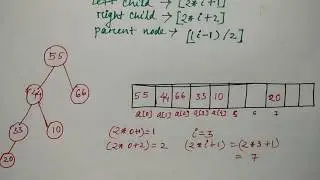 left child → [2*i+1]
right child → [2*i+2]
parent node → [(i-1)/2]
55
44
66
33
10
20
55 44 66 33 10 20
a[0] a[1] a[2] a[3] a[4] 5 6 7
(2*0+1)=1 i=3
(2*0+2)=2 (2*i+1)=(2*3+1)
= 7